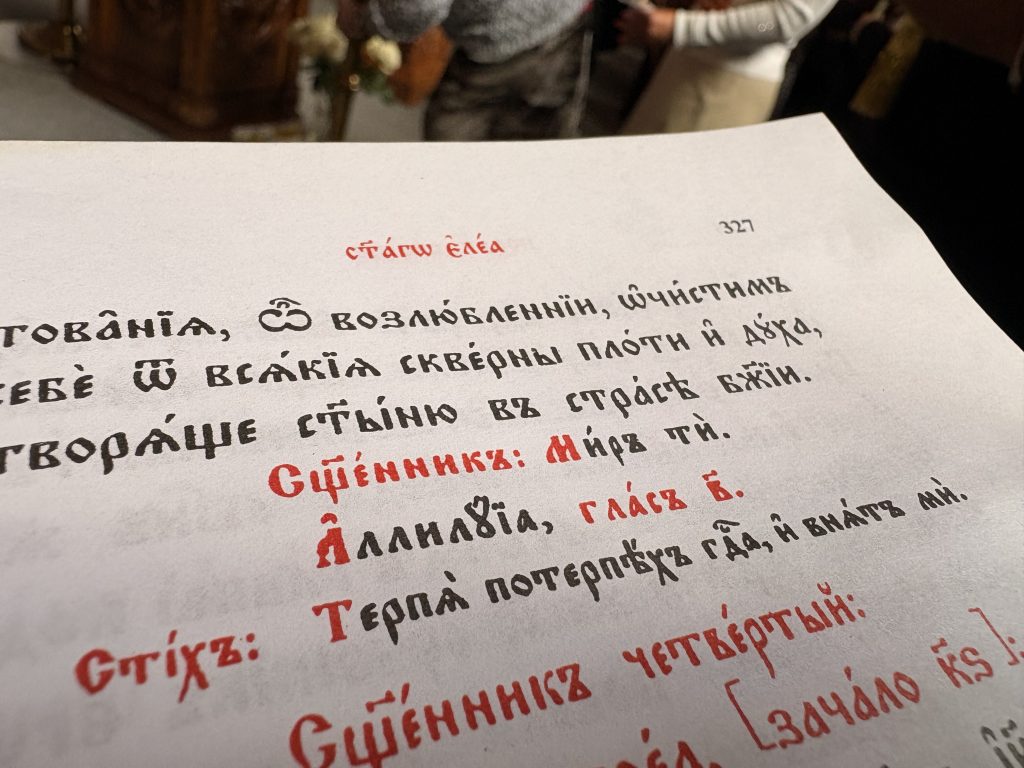 ст҃а́гѡ є҆ле́а
327
това̑нїѧ, ѽ возлю́бленнїи, ѡ҆чи́стимъ
себѐ ѿ всѧ́кїѧ скве́рны пло́ти и҆ дꙋ́ха,
творѧ́ще ст҃ы́ню въ стра́сѣ бж҃їи.
Сщ҃е́нникъ: Ми́ръ тѝ.
А҆ллилꙋ́їа, гла́съ в҃.
Сті́хъ: Терпѧ̀ потерпѣ́хъ гдⷭ҇а, и҆ внѧ́тъ мѝ.
Сщ҃е́нникъ четве́ртый:
[зача́ло к҃ѕ]: